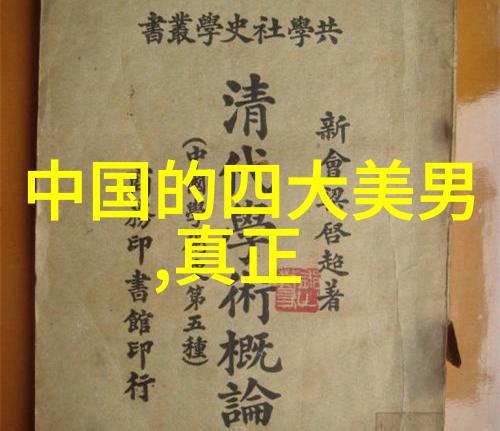 共學社史學叢書
新會梁启超著
清代學術概論
(中國學第五種)
商務印書館印行
中国的四大美男
,真正